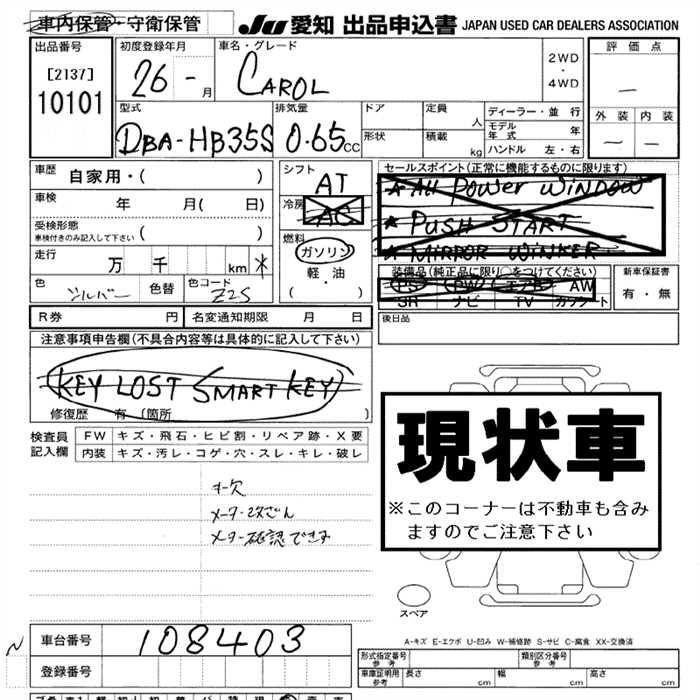 車内保管・守衛保管 JU 愛知 出品申込書 JAPAN USED CAR DEALERS ASSOCIATION
出品番号 初度登録年月 車名・グレード 2WD・4WD 評価点
[2137] 26 - 月 CAROL —
10101
型式 排気量 ドア 定員 人 ディーラー・並行 外装 内装
DBA-HB35S 0.65 CC 形状 積載 kg モデル年式 年 — —
ハンドル 左・右
車歴 自家用・( ) シフト AT セールスポイント(正常に機能するものに限ります)
車検 年 月( 日) 冷房 AC ★ All POWER WINDOW
受検形態 ( ) ★ PUSH START
車検付きのみ記入して下さい 燃料 ★ MIRROR WINKER
走行 万 千 km * ガソリン 装備品(純正品に限り○をつけてください) 新車保証書
色 シルバー 色替 色コード Z2S 軽・油 PS PW エアB AW 有・無
( ) SR ナビ TV カセット
R券 円 名変通知期限 月 日 後日品
注意事項申告欄(不具合内容等は具体的に記入して下さい)
KEY LOST SMART KEY
修復歴 有 (箇所 )
検査員記入欄 FW キズ・飛石・ヒビ割・リペア跡・X要
内装 キズ・汚レ・コゲ・穴・スレ・キレ・破レ
現状車
※このコーナーは不動車も含みますのでご注意下さい
キー欠
メーター改ざん
メーター確認できず
スペア
A-キズ E-エクボ U-凹み W-補修跡 S-サビ C-腐食 XX-交換済
車台番号 108403
登録番号
形式指定番号 参考 類別区分番号 参考
車庫証明用 参考 長さ cm 幅 cm 高さ cm